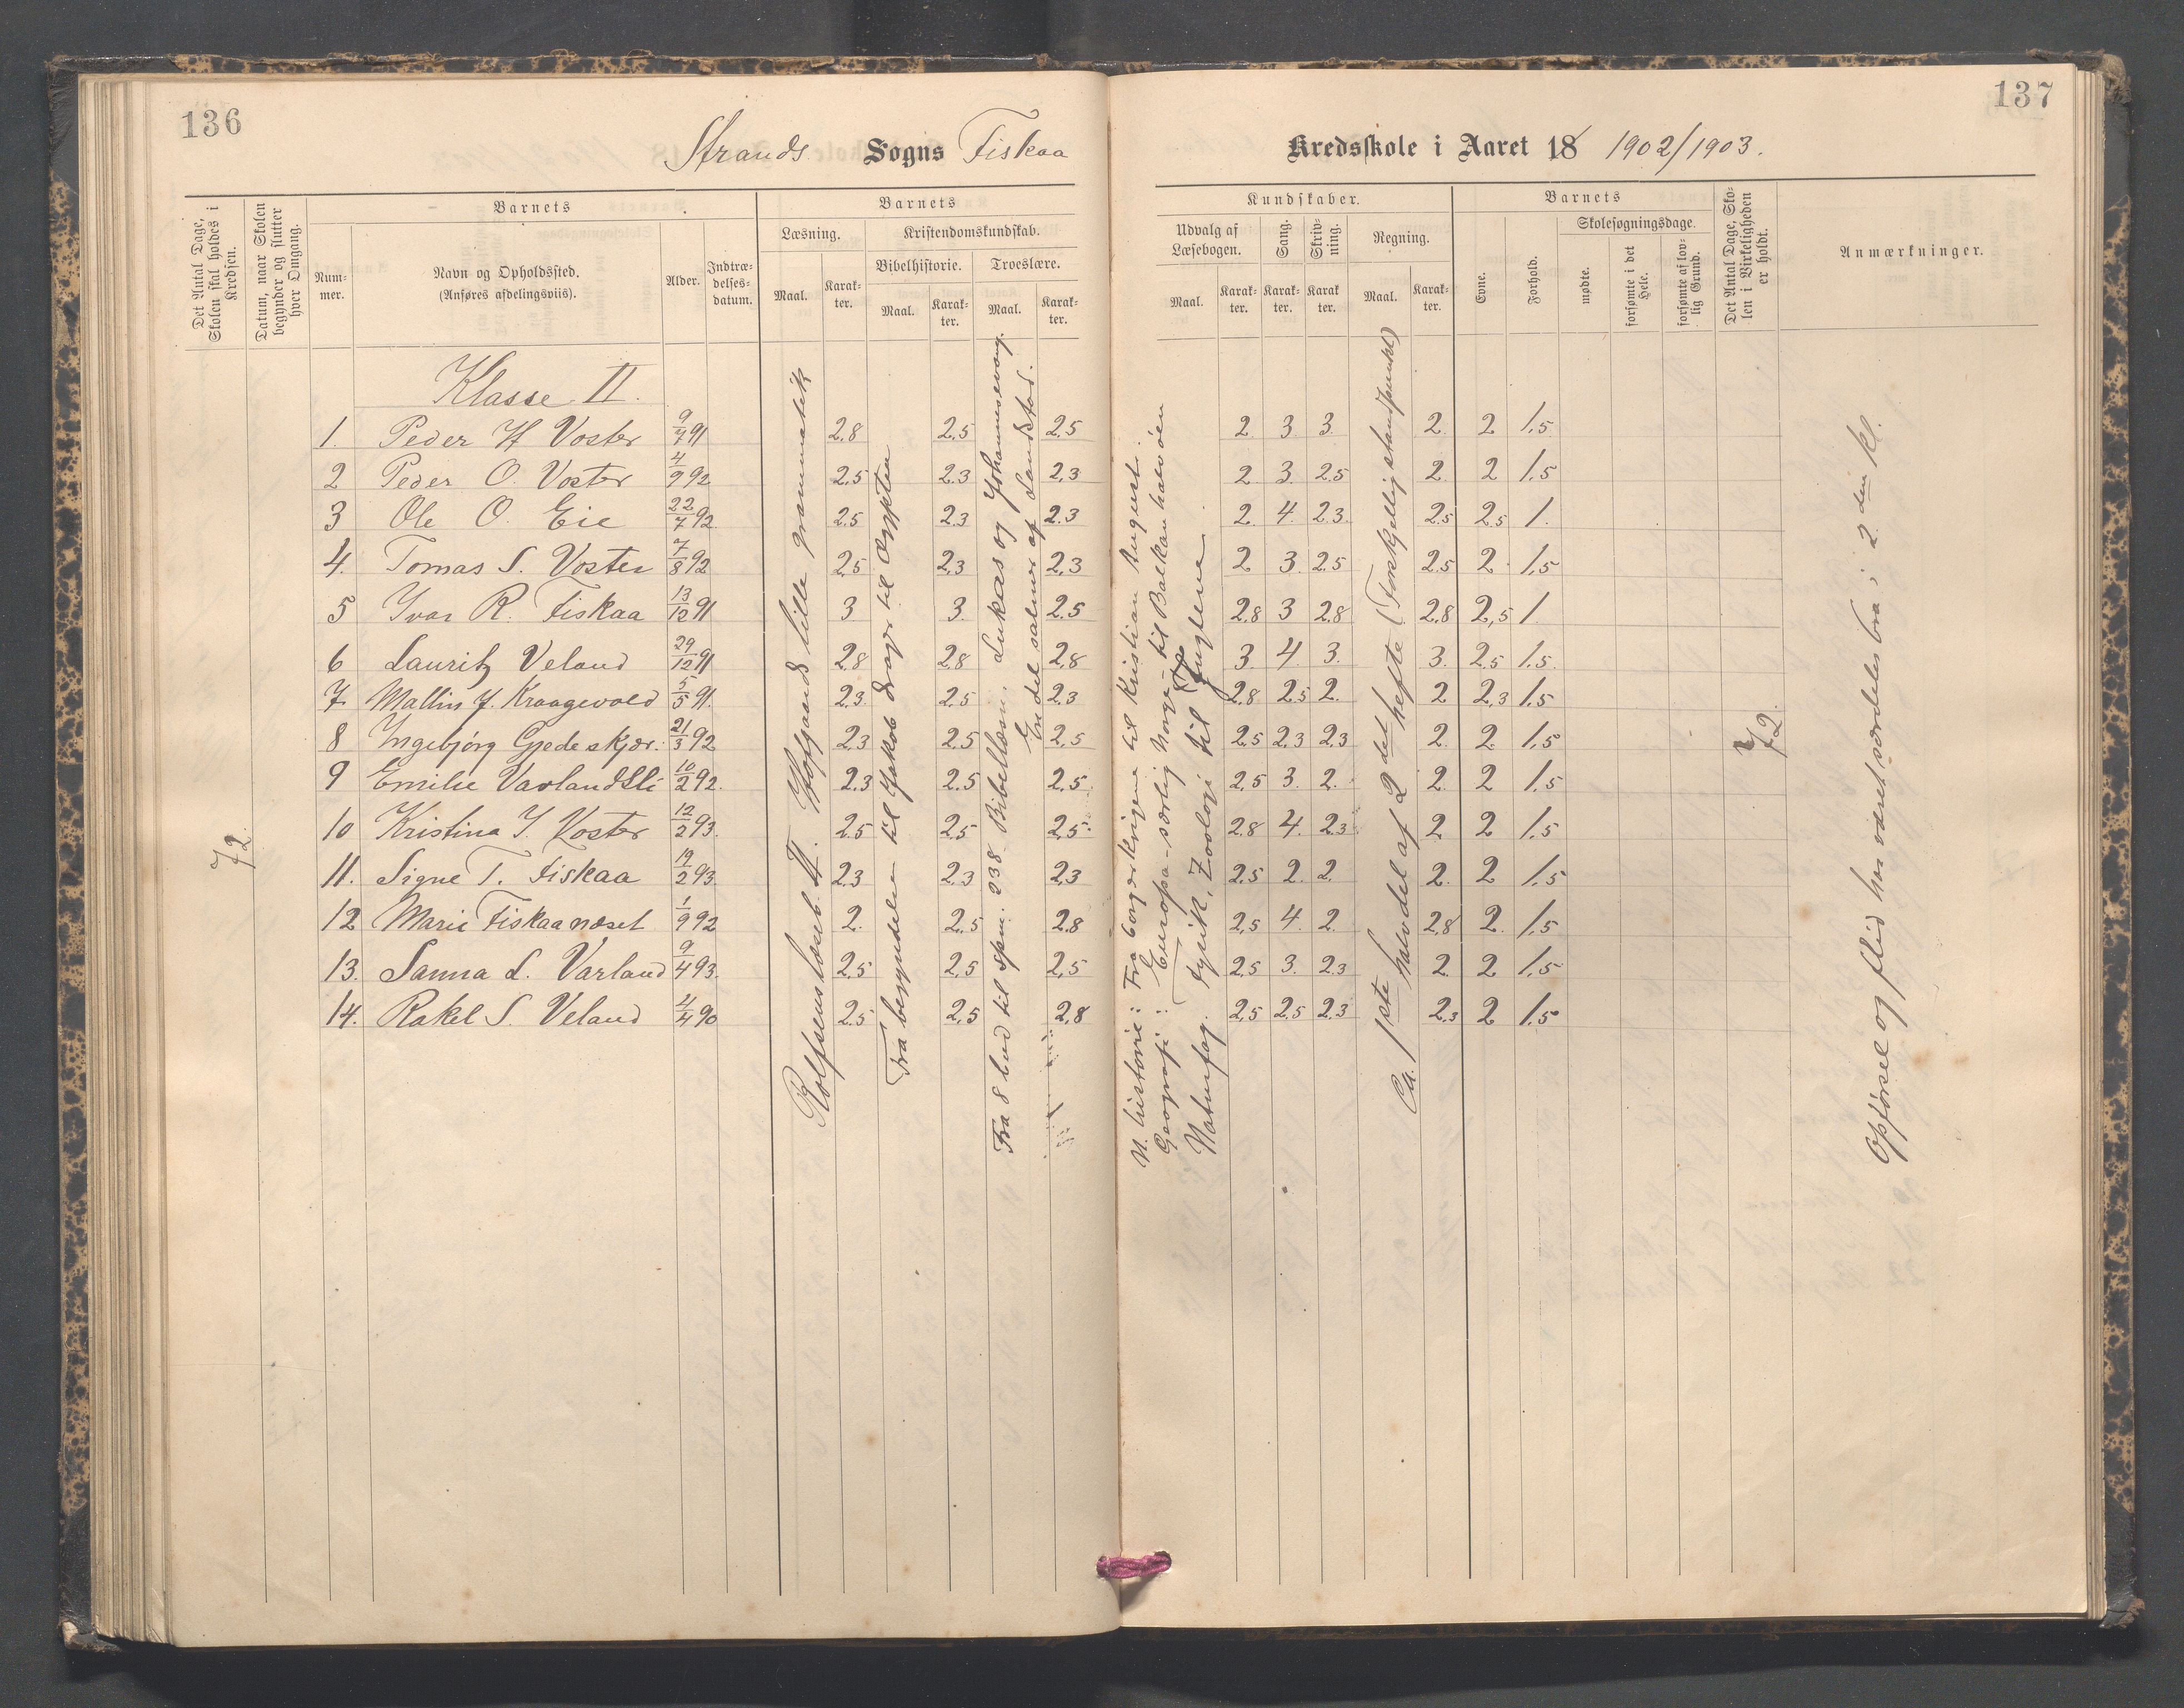 136
137
Strands Sogns Fiskaa
Kredsskole i Aaret 18 1902/1903.
Det Antal Dage, Skolen skal holdes i Kredsen.
Datum, naar Skolen begynder og slutter hver Omgang.
Barnets
Num-mer.
Navn og Opholdssted.
(Anføres afdelingsviis).
Alder.
Indtræ-delses-datum.
Barnets
Læsning.
Maal.
Karak-ter.
Kristendomskundskab.
Bibelhistorie.
Maal.
Karak-ter.
Troeslære.
Maal.
Karak-ter.
Kundskaber.
Udvalg af Læsebogen.
Maal.
Karak-ter.
Sang.
Karak-ter.
Skriv-ning.
Karak ter.
Regning.
Maal.
Karak-ter.
Barnets
Evne.
Forhold.
Skolesøgningsdage.
mødte.
forsømte i det Hele.
forsømte af lov-lig Grund.
Det Antal Dage, Sko-len i Virkeligheden er holdt.
Anmærkninger.
Klasse II.
1. Peder H Voster 9/7 91 2.8 2.5 2.5 2 3. 3. 2. 2 1.5
2 Peder O. Voster 4/9 92 2.5 2.3 2.3 2 3. 2.5 2 2 1.5
3 Ole O. Eie 22/7 92 2.5 2.3 2.3 2. 4. 2.3. 2.5 2.5 1.
4. Tomas S. Voster 7/8 92 2.5 2.3 2.3 2 3. 2.5 2.5 2. 1.5
5 Ivar R. Fiskaa 13/12 91 3 3. 2.5 2.8 3 2.8 2.8 2,5 1.
6 Lauritz Veland 29/12 91 2.8 2.8 2.8 3. 4. 3. 3. 2.5 1.5.
7. Mallin J. Kraagevold 5/5 91. 2.3. 2.5 2.3 2.8 2.5 2. 2 2.3 1.5
8 Ingebjörg Gjedeskjær. 21/3 92 2.3 2.5 2.5 2.5 2.3 2.3 2. 2. 1.5
9 Emilie Varlandsli 10/2 92. 2.3 2.5 2.5 2.5 3. 2. 2. 2 1.5
10 Kristina I. Voster 12/2 93. 2.5 2.5 2.5. 2.8 4. 2.3 2 2 1.5
11. Signe T. Fiskaa 19/2 93. 2.3 2.3 2.3 2.5 2. 2. 2. 2 1.5
12 Marie Fiskaanæset 1/9 92 2. 2.5 2.8 2.5 4. 2. 2.8 2. 1.5
13. Sanna L. Varland 9/4 93. 2.5 2.5 2.5 2.5 3. 2.3 2. 2 1.5
14. Rakel S. Veland 4/4 90 2.5 2.5 2.8 2.5 2.5 2.3 2.3 2 1.5
72.
Rolfsens læseb. II. Hofgaards lille grammatik
Fra begyndelsen til Jakob drager til Ægypten
Fra 8 bud til spm. 238. Bibellæsn. Lukas og Johannesevang.
En del salmer af Landstad.
N. historie: Fra borgerkrigene til Kristian August.
Geografi: Europa - særlig Norge - til Balkanhalvöen
Naturfag. Fysik, Zoologi til fuglene.
Ca. 1ste halvdel af 2det hefte (Forskjellig standpunkt)
72.
Opförsel og flid har været særdeles bra i 2den kl.